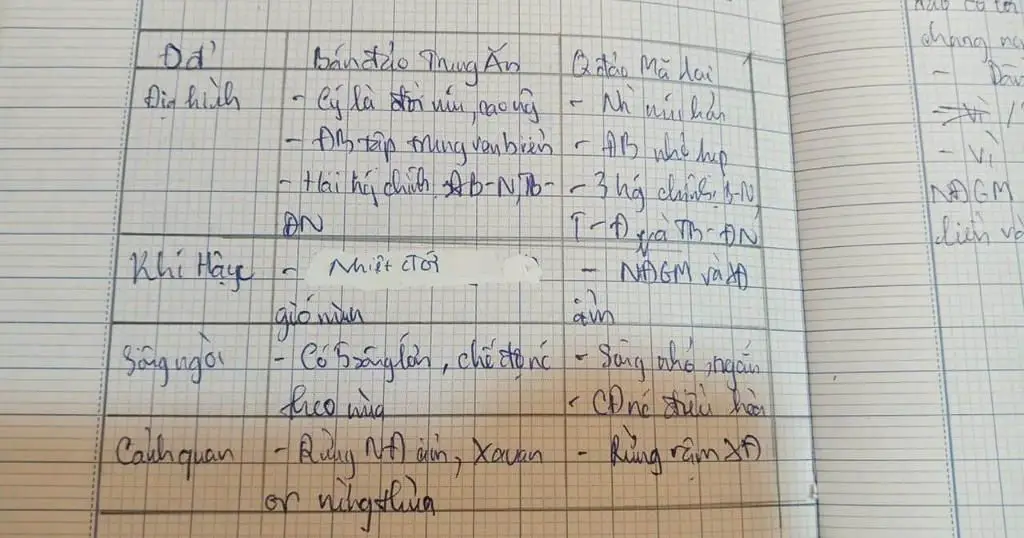 Đđ' Bán đảo Trung Ấn Q đảo Mã Lai
Địa hình - Cý là đồi núi, cao ng - Nh núi lửa
- ĐB tập trung ven biển - ĐB nhỏ hẹp
- Hai hg chính: ĐB-N, TB- - 3 hg chính: B-N
ĐN T-Đ và TB-ĐN
Khí Hậu - Nhiệt đới - NĐGM và XĐ
gió mùa ẩm
Sông ngòi - Có 5 sông lớn, chế độ nc - Sông nhỏ, ngắn
theo mùa - CĐ nc điều hòa
Cảnh quan - Rừng NĐ ẩm, Xavan - Rừng rậm XĐ
or rừng thưa
chang
-
- Vì
NĐGM